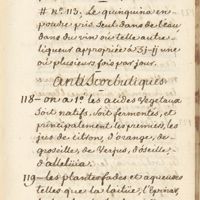 # n.° 113. Le quinquina en
poudre pris seul dans de l'eau
dans du vin ou telle autre
liqueur appropriée à ʒj-ij une
ou plusieurs fois par jour.
antiscorbutiques
118 - on a 1.° les acides vegetaux
soit natifs, soit fermentés, et
principalement les premiers, les
jus de citron, d'orange, de
groseille, de verjus, d'oseille,
d'alleluia.
119 - les plantes fades et aqueuses
telles que la laitüe, l'epinar,